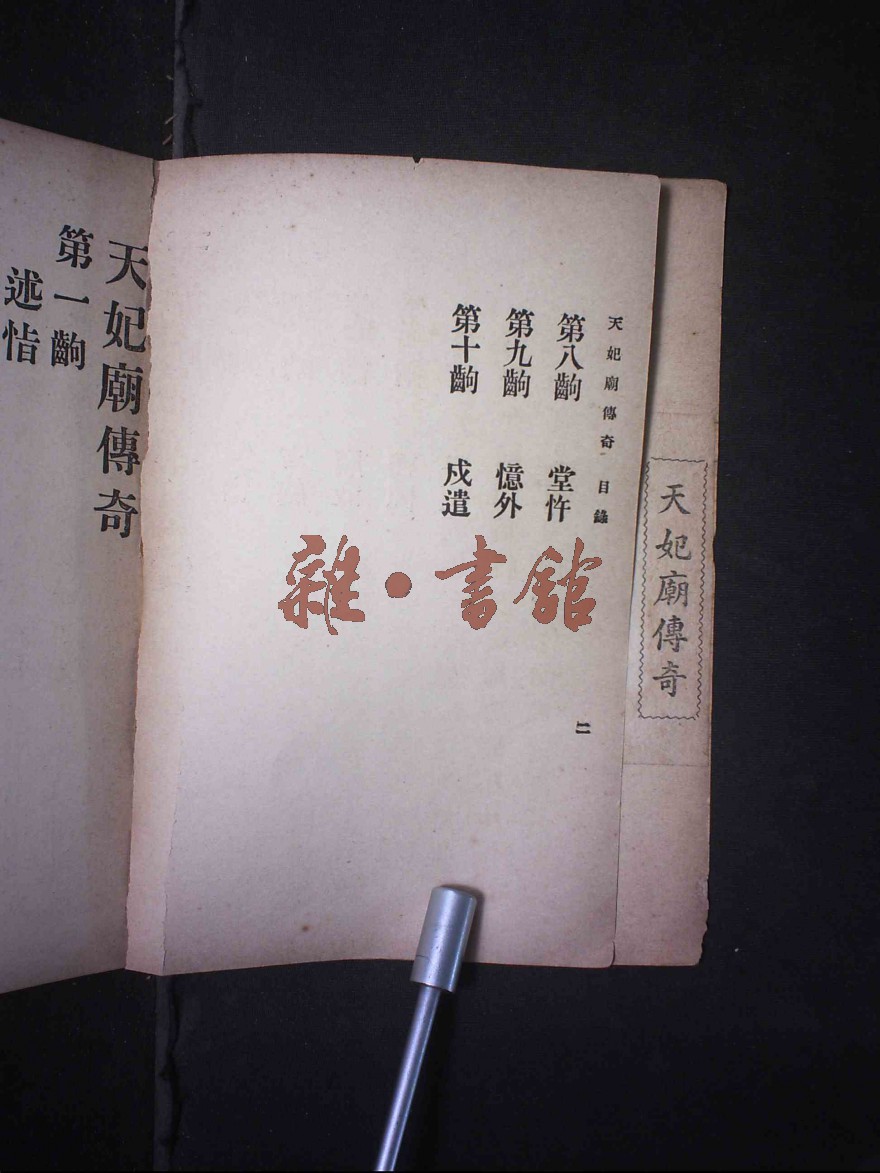 天妃廟傳奇
天妃廟傳奇 目錄
第八齣 堂忤
第九齣 憶外
第十齣 戍遣
二
天妃廟傳奇
第一齣
述恉
雜・書館